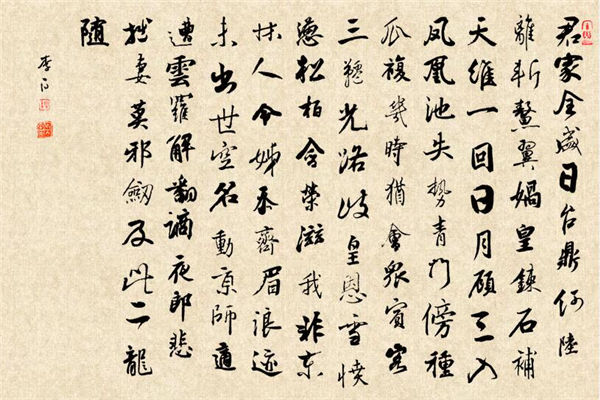 君家全盛日台鼎何陸
離斬鰲翼媧皇鍊石補
天維一回日月顧三入
鳳凰池失勢青門傍種
瓜複幾時猶會眾賓客
三韆光路歧皇恩雪憤
懣松柏含榮滋我非東
牀人令姊忝齊眉浪迹
未出世空名動京師適
遭雲羅解翻謫夜郎悲
拙妻莫邪劍及此二龍
随
李白